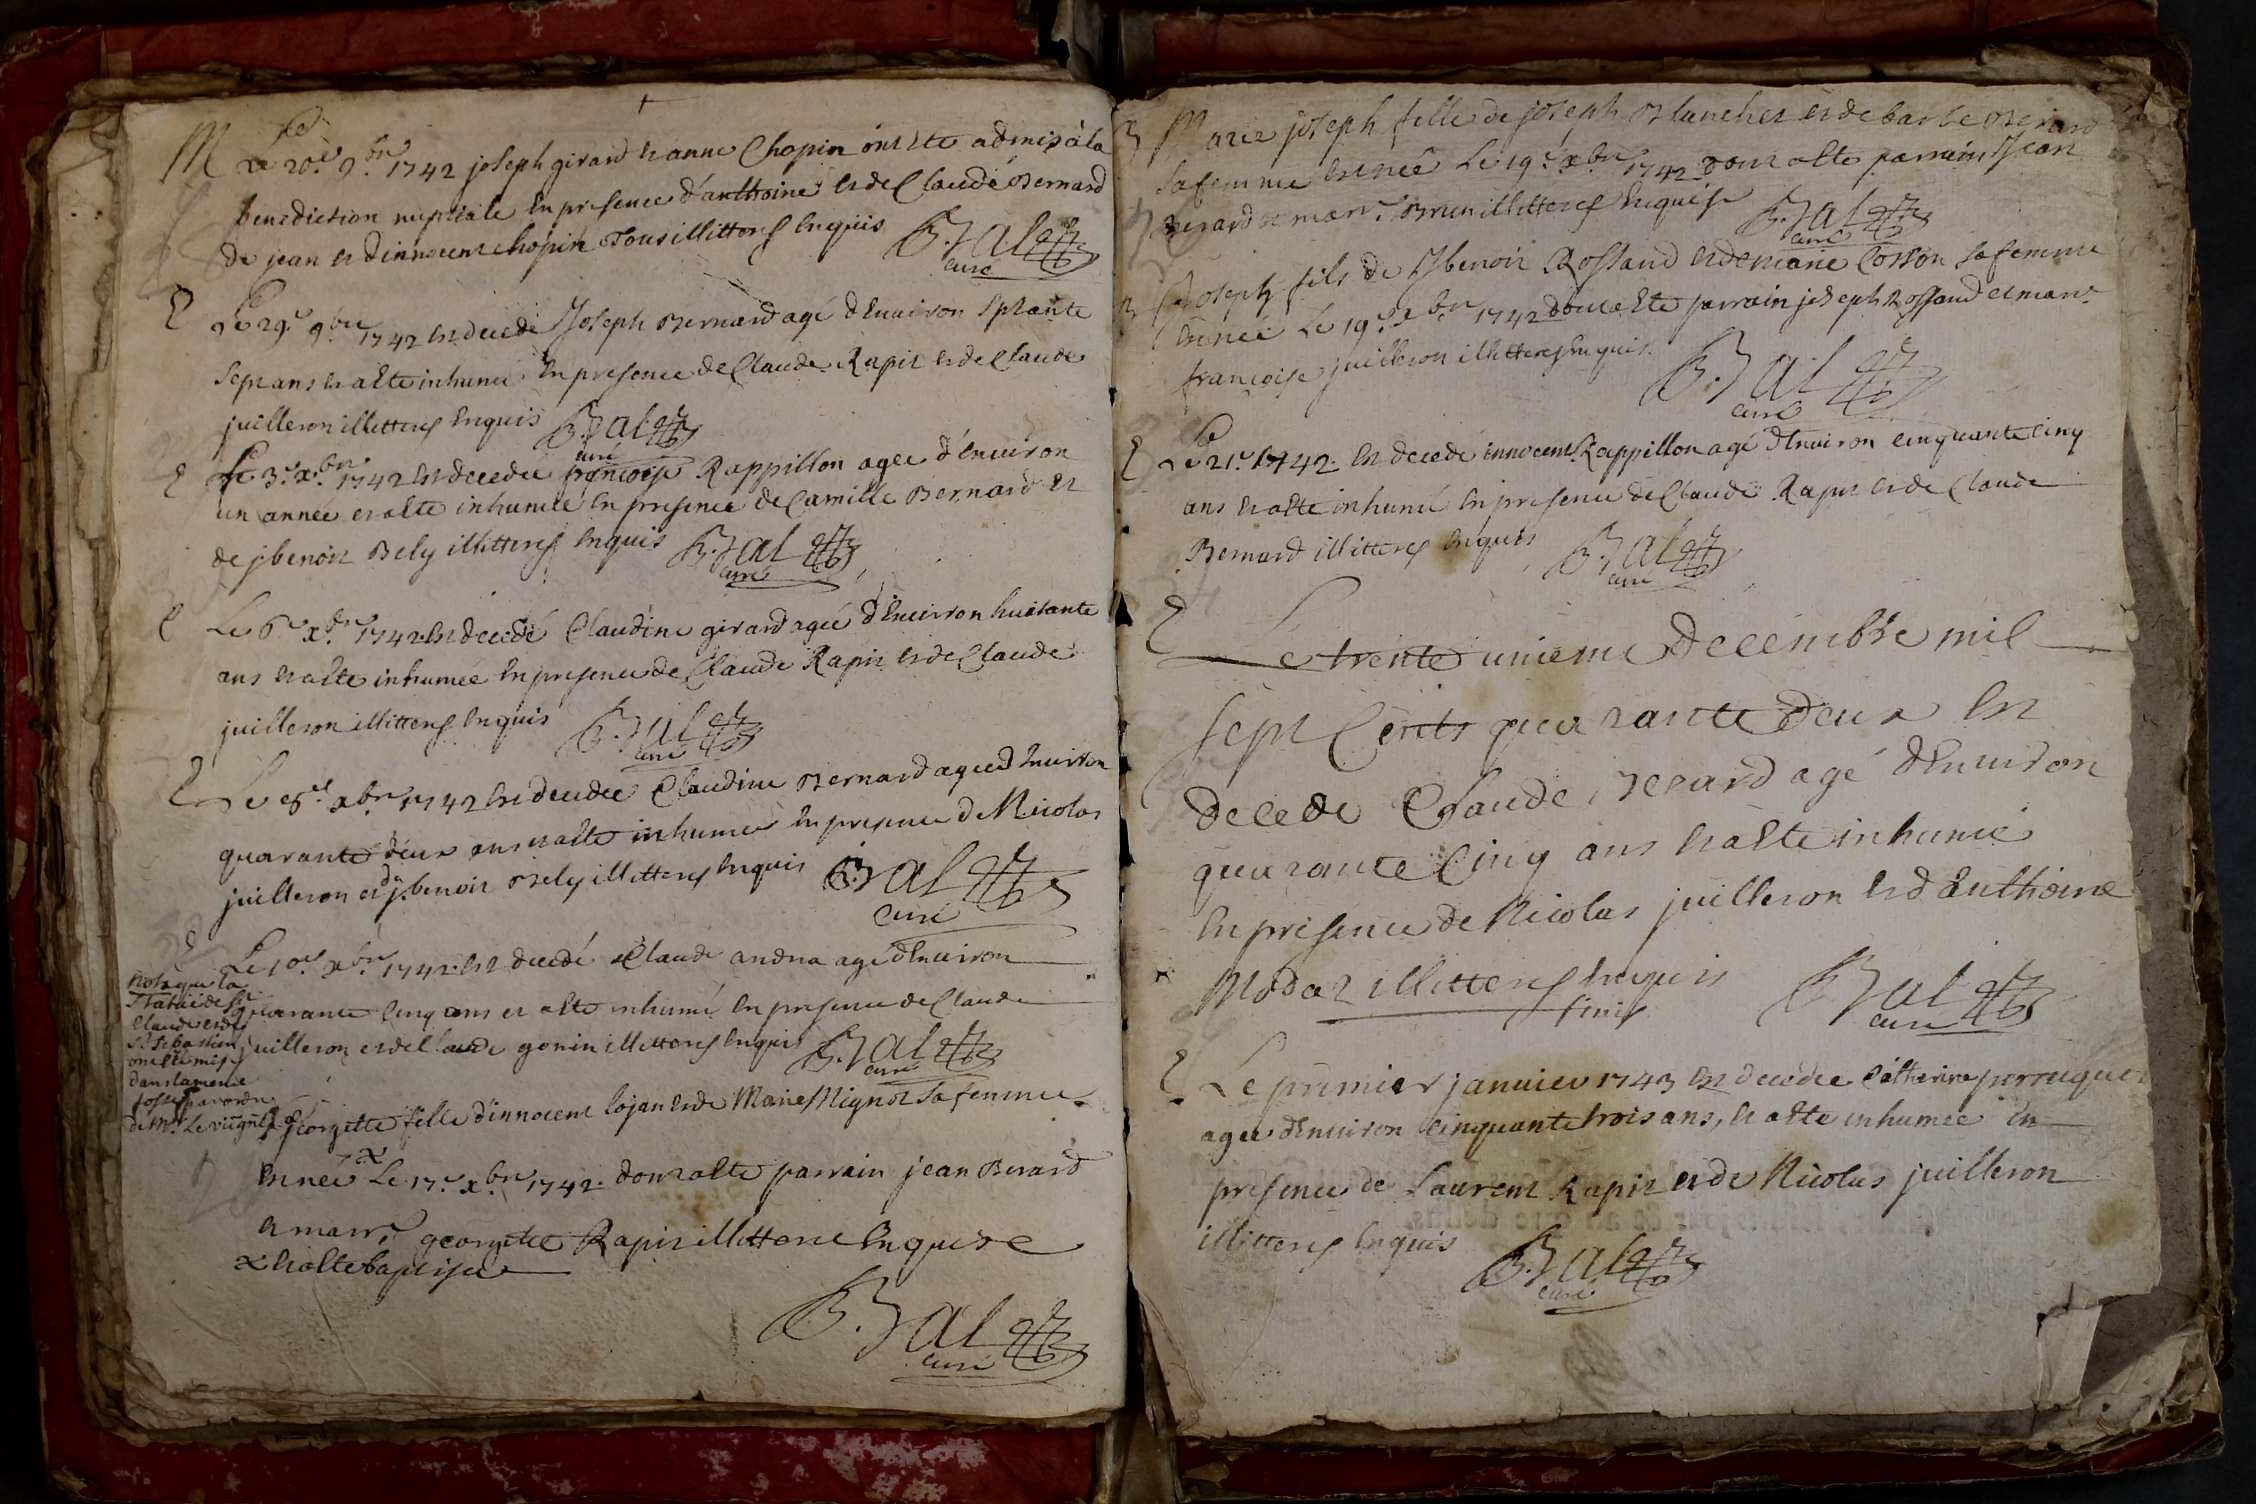 M Le 20.e 9.bre 1742 joseph girard et anne Chapin ont ete admis a la
benediction nuptiale en presence d'anthoine et de Claude Bernard
de jean et d'innocent chopin Tous illitteres enquis B. Jal
curé
E Le 29.e 9.bre 1742 est decedé Joseph Bernard agé d'environ Sptante
Sept ans et a ete inhumé en presence de Claude Rapit et de Claude
juilleron illitteres enquis B. Jal
curé
E Le 3.e x.bre 1742 est decedée francoise Rappillon agee d'environ
un année et a ete inhumée en presence de Camille Bernard et
de jbenoit Bely illitteres enquis B. Jal
curé
E Le 6.e x.bre 1742 est decedé Claudine girard agée d'environ huitante
ans et a ete inhumée en presence de Claude Rapit et de Claude
juilleron illitteres enquis B. Jal
curé
E Le 8.e xbre 1742 est decedée Claudine Bernard agee d'environ
quarante deux ans et a ete inhumée en presence de Nicolas
juilleron et de j.benoit Bely illitteres enquis B. Jal
curé
E Le 10.e x.bre 1742 est decedé Claude andna agé d'environ
quarante Cinq ans et a ete inhumé en presence de Claude
juilleron et de Claude gonin illitteres enquis B. Jal
curé
nota que la
Statuë de St
Claude et de
St Sebastien
ont ete mis
dans la meme
fosse par ordre
de Mr Le
georgette fille d'innocent lojan et de Marie Mignot Sa femme
est née x Le 17.e x.bre 1742. dont a ete parrain jean Berard
et marr.e georgette Rapit illitteres enquise
x et a ete baptisee
B. Jal
curé
B Marie joseph fille de joseph Blanchet et de barbe Berard
Sa femme est née Le 19.e x.bre 1742 dont a ete parrain Jean
Berard et marr.e Brun illitteres enquise B. Jal
curé
B Joseph fils de Jbenoit Rossand et de marie Cotton Sa femme
est née Le 19.e x.bre 1742 dont a ete parrain joseph Rossand et marr.e
francoise juilleron illitteres enquis B. Jal
curé
E Le 21.e 1742. est decedé innocent Rappillon agé d'environ cinquante cinq
ans et a ete inhumé en presence de Claude Rapit et de Claude
Bernard illitteres enquis B. Jal
curé
E Le trente unieme Decembre mil
sept Cents quarante deux est
decede Claude Berard agé d'environ
quarante Cinq ans et a ete inhumé
en presence de Nicolas juilleron et d'anthoine
Modat illitteres enquis B. Jal
finis curé
E Le premier janvier 1743 est decedée Catherine perruquet
agee d'environ cinquante trois ans, et a ete inhumée en
presence de Laurent Rapit et de Nicolas juilleron
illitteres enquis B. Jal
curé